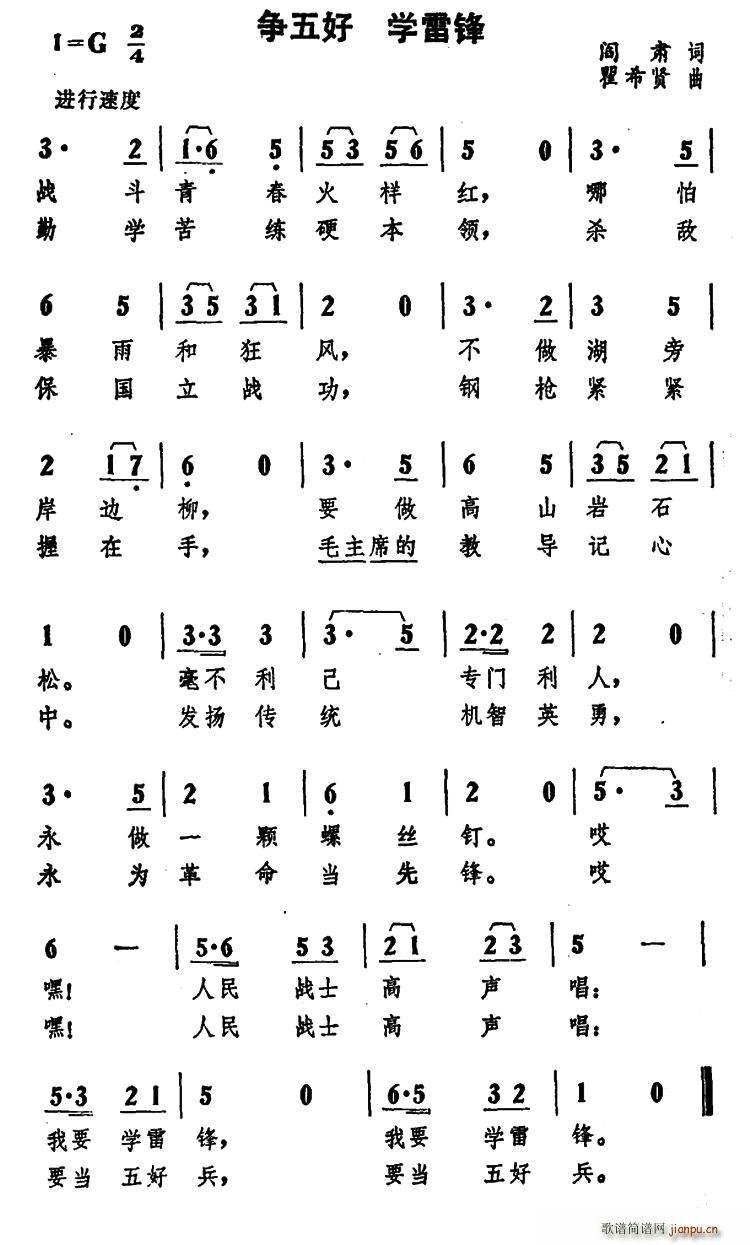 争五好 学雷锋
1=G 2/4
阎肃词
瞿希贤曲
进行速度
3· 2 | 1·6 5 | 5 3 5 6 | 5 0 | 3· 5 |
战斗青春火样红，哪怕
勤学苦练硬本领，杀敌
6 5 | 3 5 3 1 | 2 0 | 3· 2 | 3 5 |
暴雨和狂风，不做湖旁
保国立战功，钢枪紧紧
2 1 7 | 6 0 | 3· 5 | 6 5 | 3 5 2 1 |
岸边柳，要做高山岩石
握在手，毛主席的教导记心
1 0 | 3·3 3 | 3· 5 | 2·2 2 | 2 0 |
松。毫不利己专门利人，
中。发扬传统机智英勇，
3· 5 | 2 1 | 6 1 | 2 0 | 5· 3 |
永做一颗螺丝钉。哎
永为革命当先锋。哎
6 — | 5·6 5 3 | 2 1 2 3 | 5 — |
嘿！人民战士高声唱：
嘿！人民战士高声唱：
5·3 2 1 | 5 0 | 6·5 3 2 | 1 0 ‖
我要学雷锋，我要学雷锋。
要当五好兵，要当五好兵。
歌谱简谱网 jianpu.cn